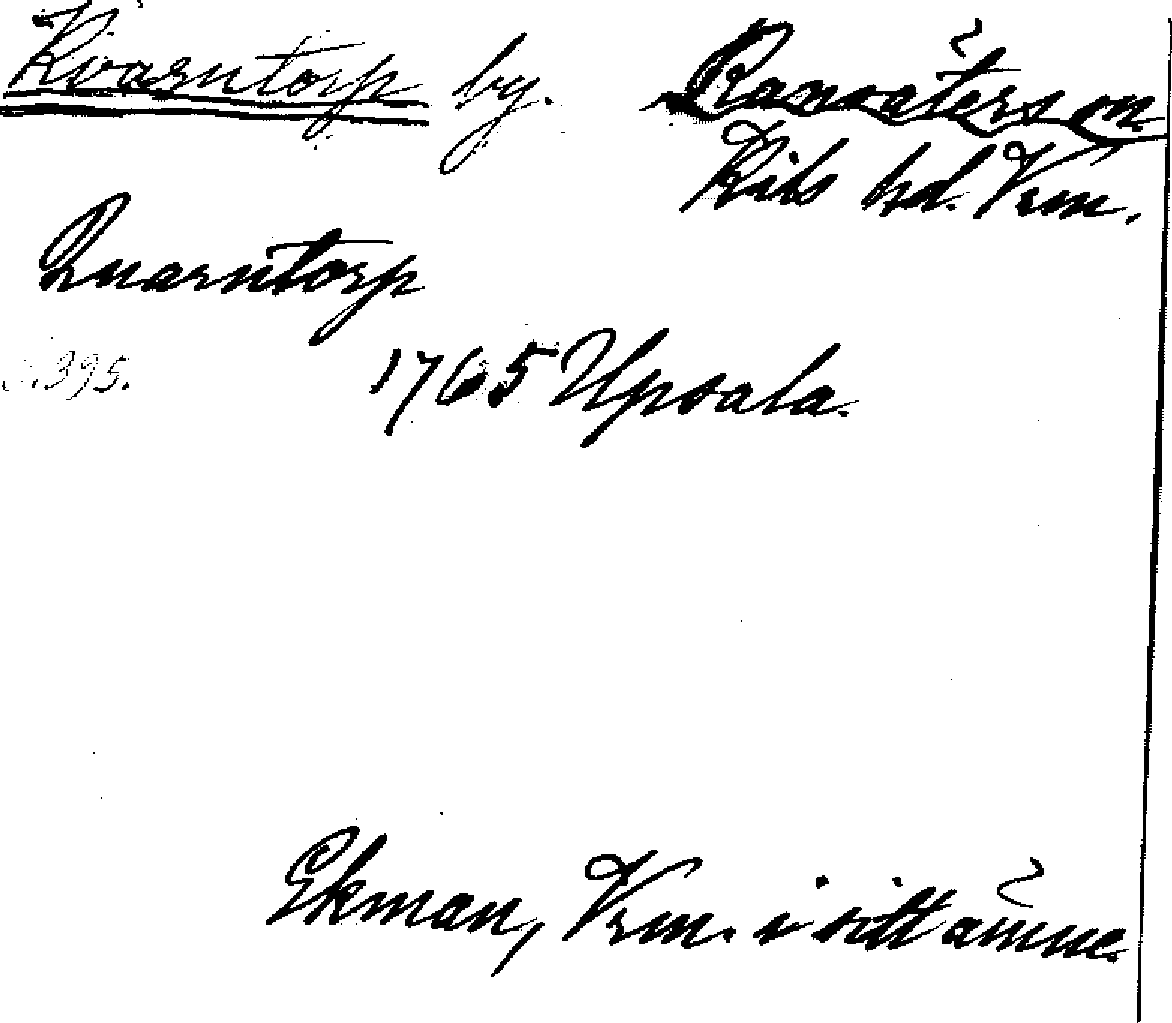 Kvarntorp by. Ransäters sn.
Kils hd. Vrm.
Quarntorp
s.395. 1765 Upsala.
Ekman, Vrm. i sitt ämne.